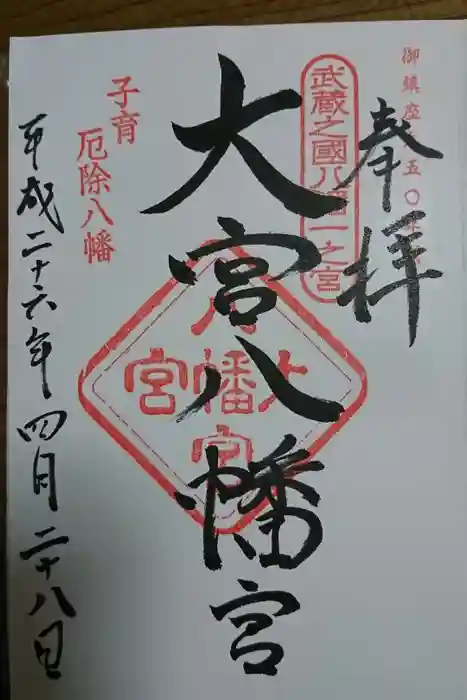 御鎮座
五〇年
奉拝
武蔵之國八幡一之宮
大宮八幡宮
大宮八幡宮
子育
厄除八幡
平成二十六年四月二十八日